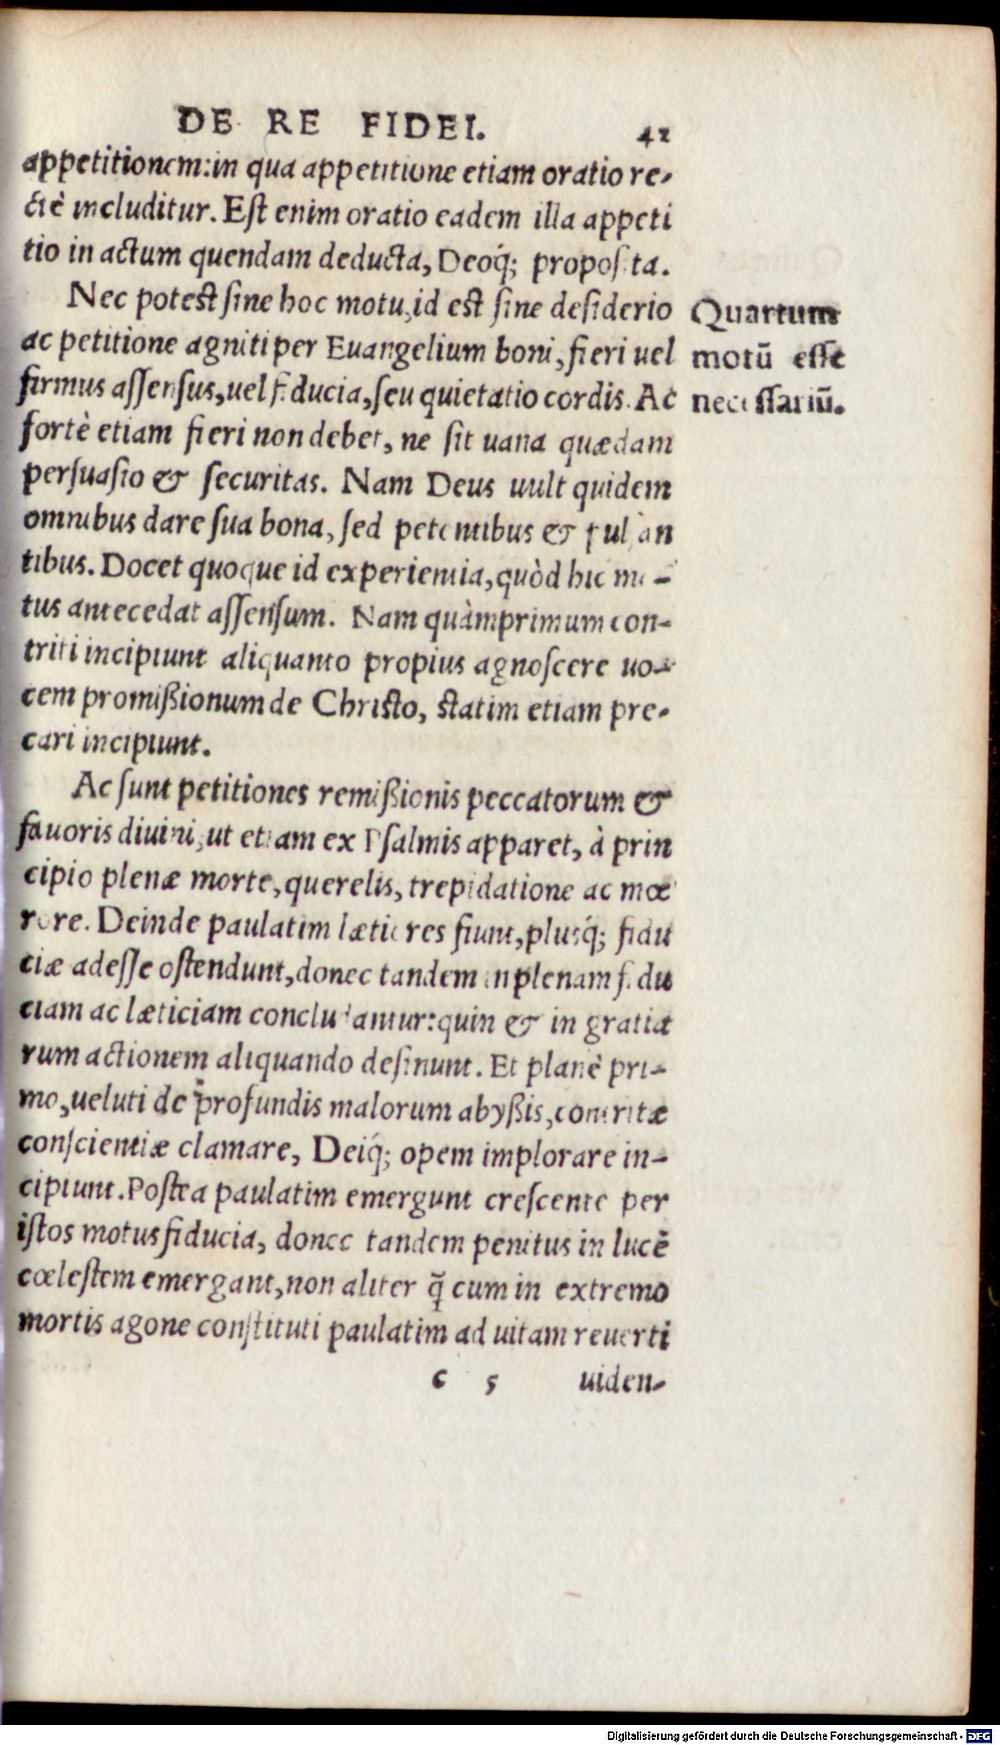 DE RE FIDEI. 41
appetitionem: in qua appetitione etiam oratio re-
ctè includitur. Est enim oratio eadem illa appeti
tio in actum quendam deducta, Deoq́; proposita.
Nec potest sine hoc motu, id est sine desiderio
ac petitione agniti per Euangelium boni, fieri uel
firmus assensus, uel fiducia, seu quietatio cordis. Ac
fortè etiam fieri non debet, ne sit uana quædam
persuasio & securitas. Nam Deus uult quidem
omnibus dare sua bona, sed petentibus & pulsan
tibus. Docet quoque id experientia, quòd hic mo-
tus antecedat assensum. Nam quàmprimum con-
triti incipiunt aliquanto propius agnoscere uo-
cem promißionum de Christo, statim etiam pre-
cari incipiunt.
Ac sunt petitiones remißionis peccatorum &
fauoris diuini, ut etiam ex Psalmis apparet, à prin
cipio plenæ morte, querelis, trepidatione ac mœ
rore. Deinde paulatim lætiores fiunt, plusq́; fidu
ciæ adesse ostendunt, donec tandem in plenam fidu
ciam ac læticiam concludantur: quin & in gratia
rum actionem aliquando desinunt. Et planè pri-
mo, ueluti de profundis malorum abyßis, contritæ
conscientiæ clamare, Deiq́; opem implorare in-
cipiunt. Postea paulatim emergunt crescente per
istos motus fiducia, donec tandem penitus in lucē
cœlestem emergant, non aliter q̃ cum in extremo
mortis agone constituti paulatim ad uitam reuerti
c 5 uiden-
Quartum
motū esse
necessariū.
Digitalisierung gefördert durch die Deutsche Forschungsgemeinschaft - DFG